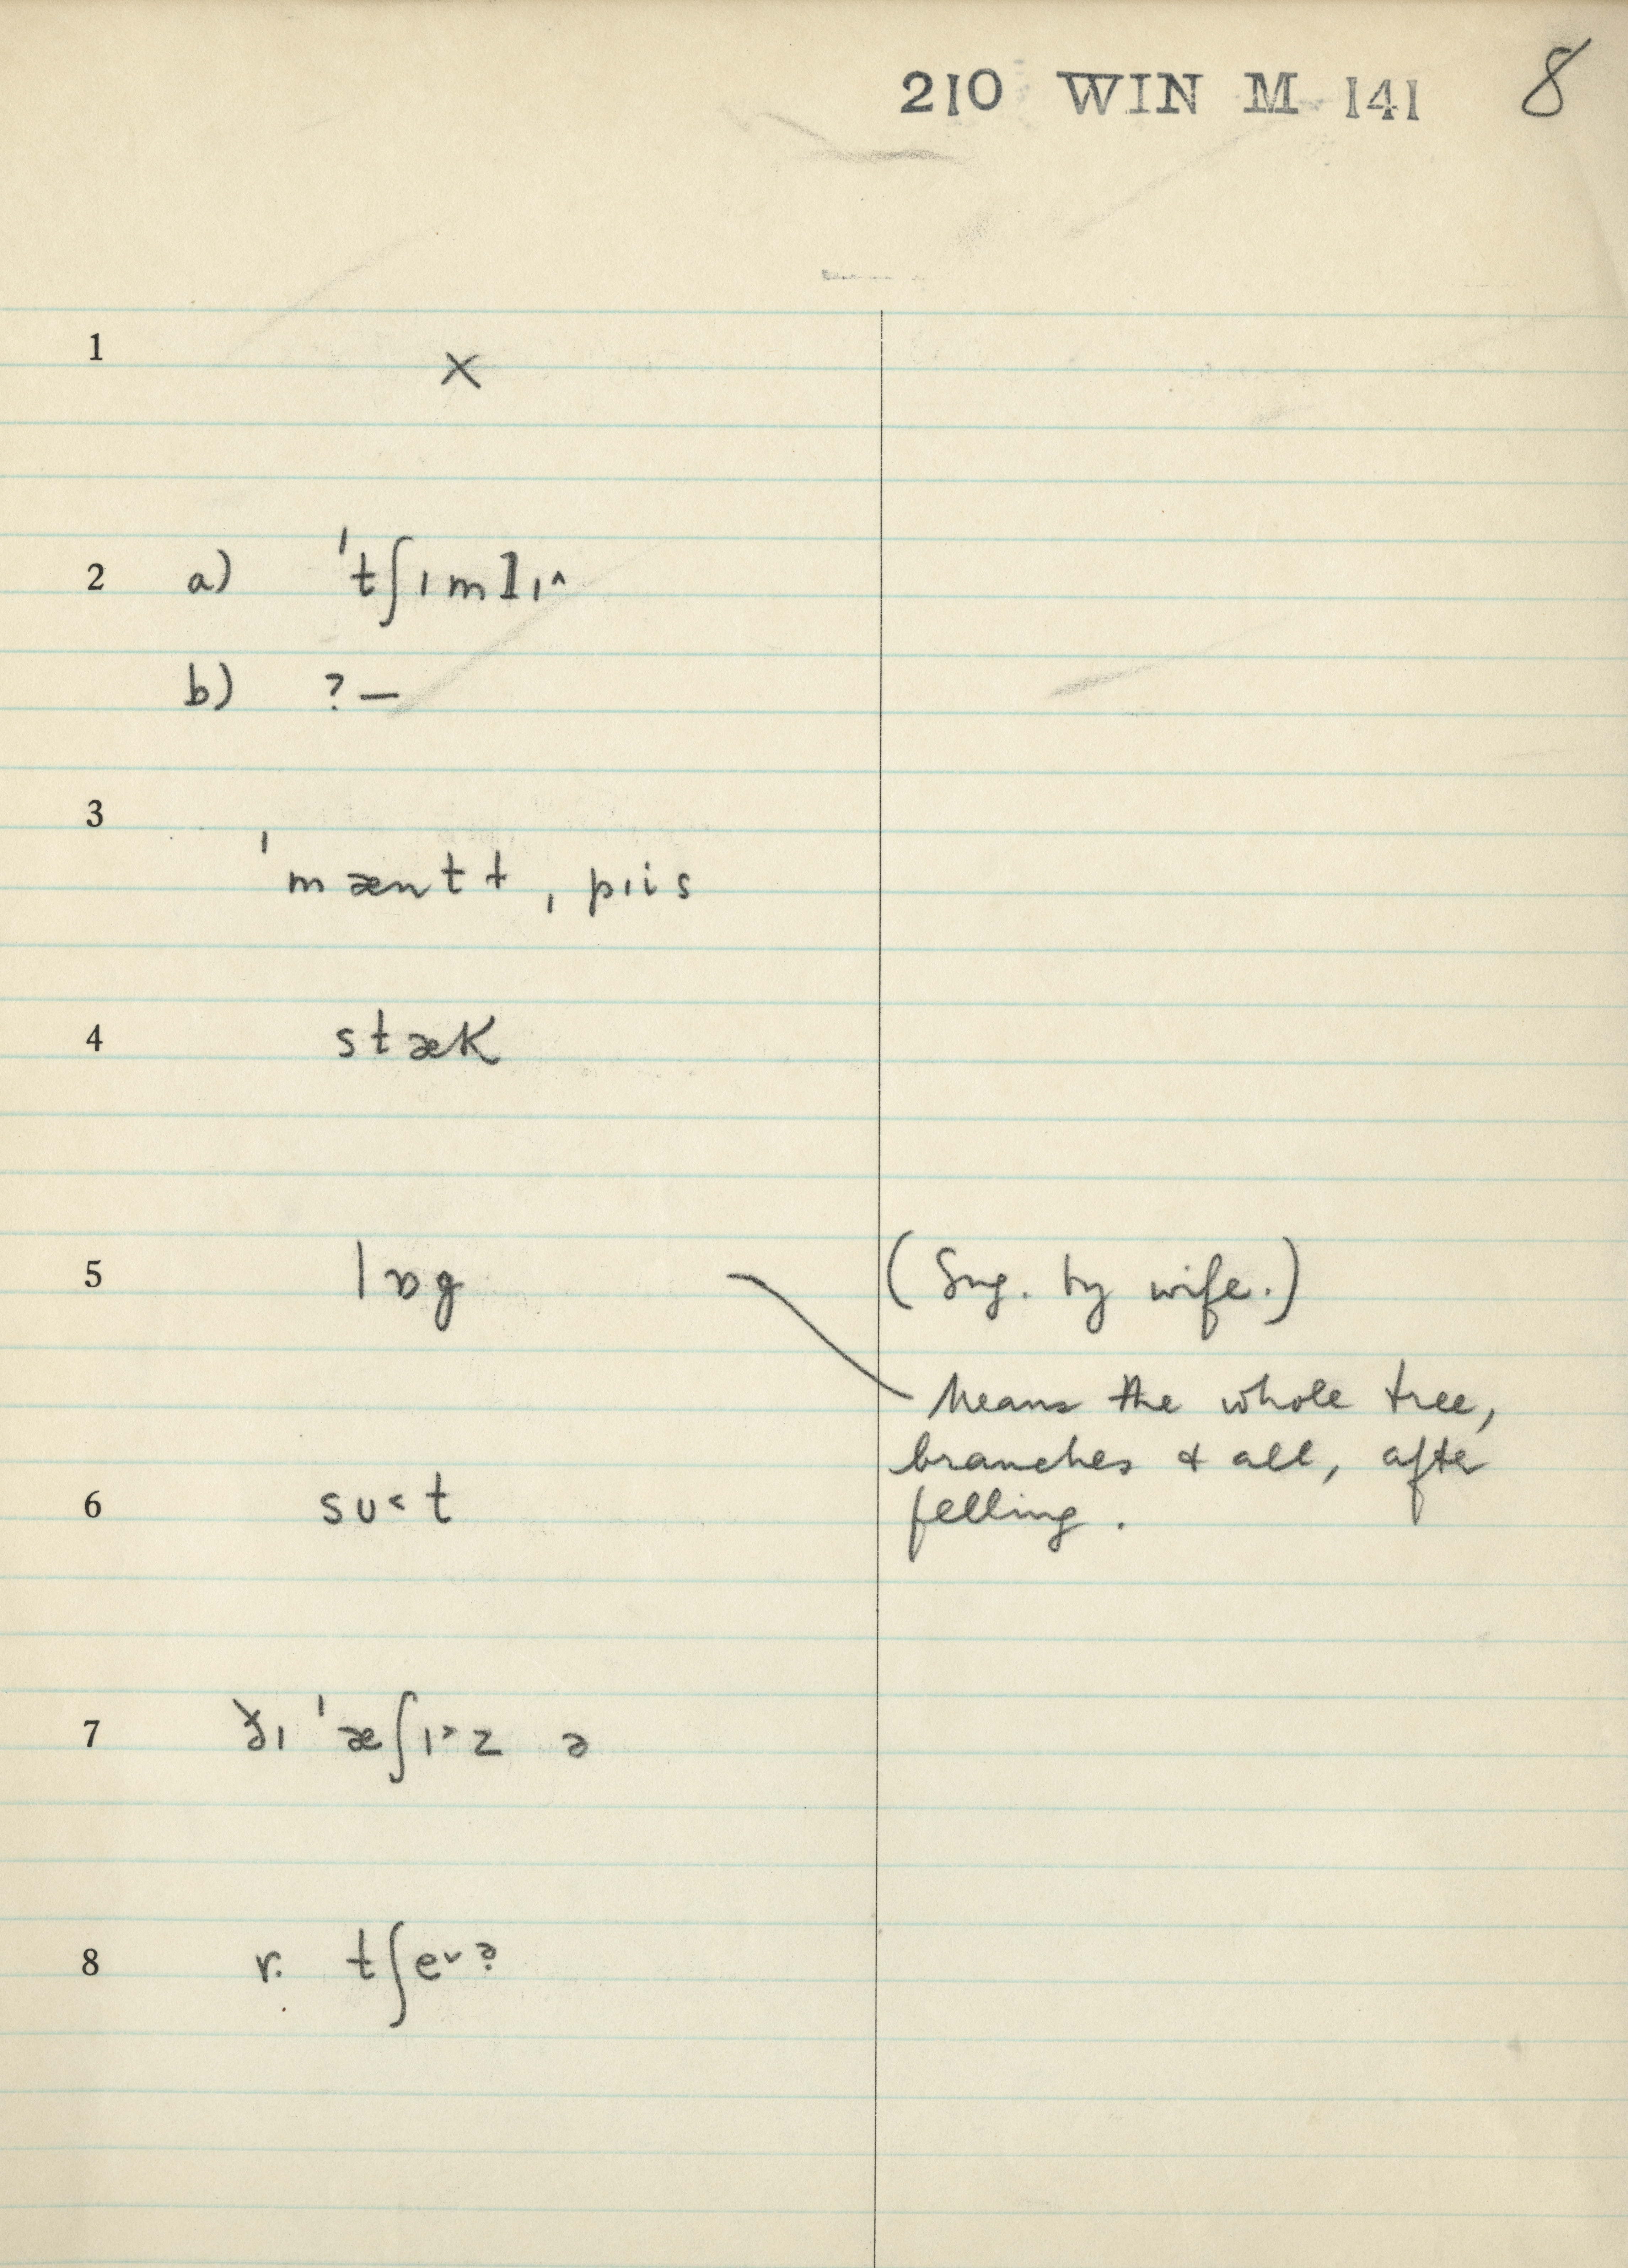 210 WIN M 141 8
1 ×
2 a) 'tʃɪmlɪ^
b) ?—
3 'mæntɫ ˌpiis
4 stæk
5 lɒg (Sug. by wife.)
Means the whole tree,
branches & all, after
felling.
6 sʊ˂t
7 ðɪ 'æʃɪ˃z ə
8 r. tʃeᵛə